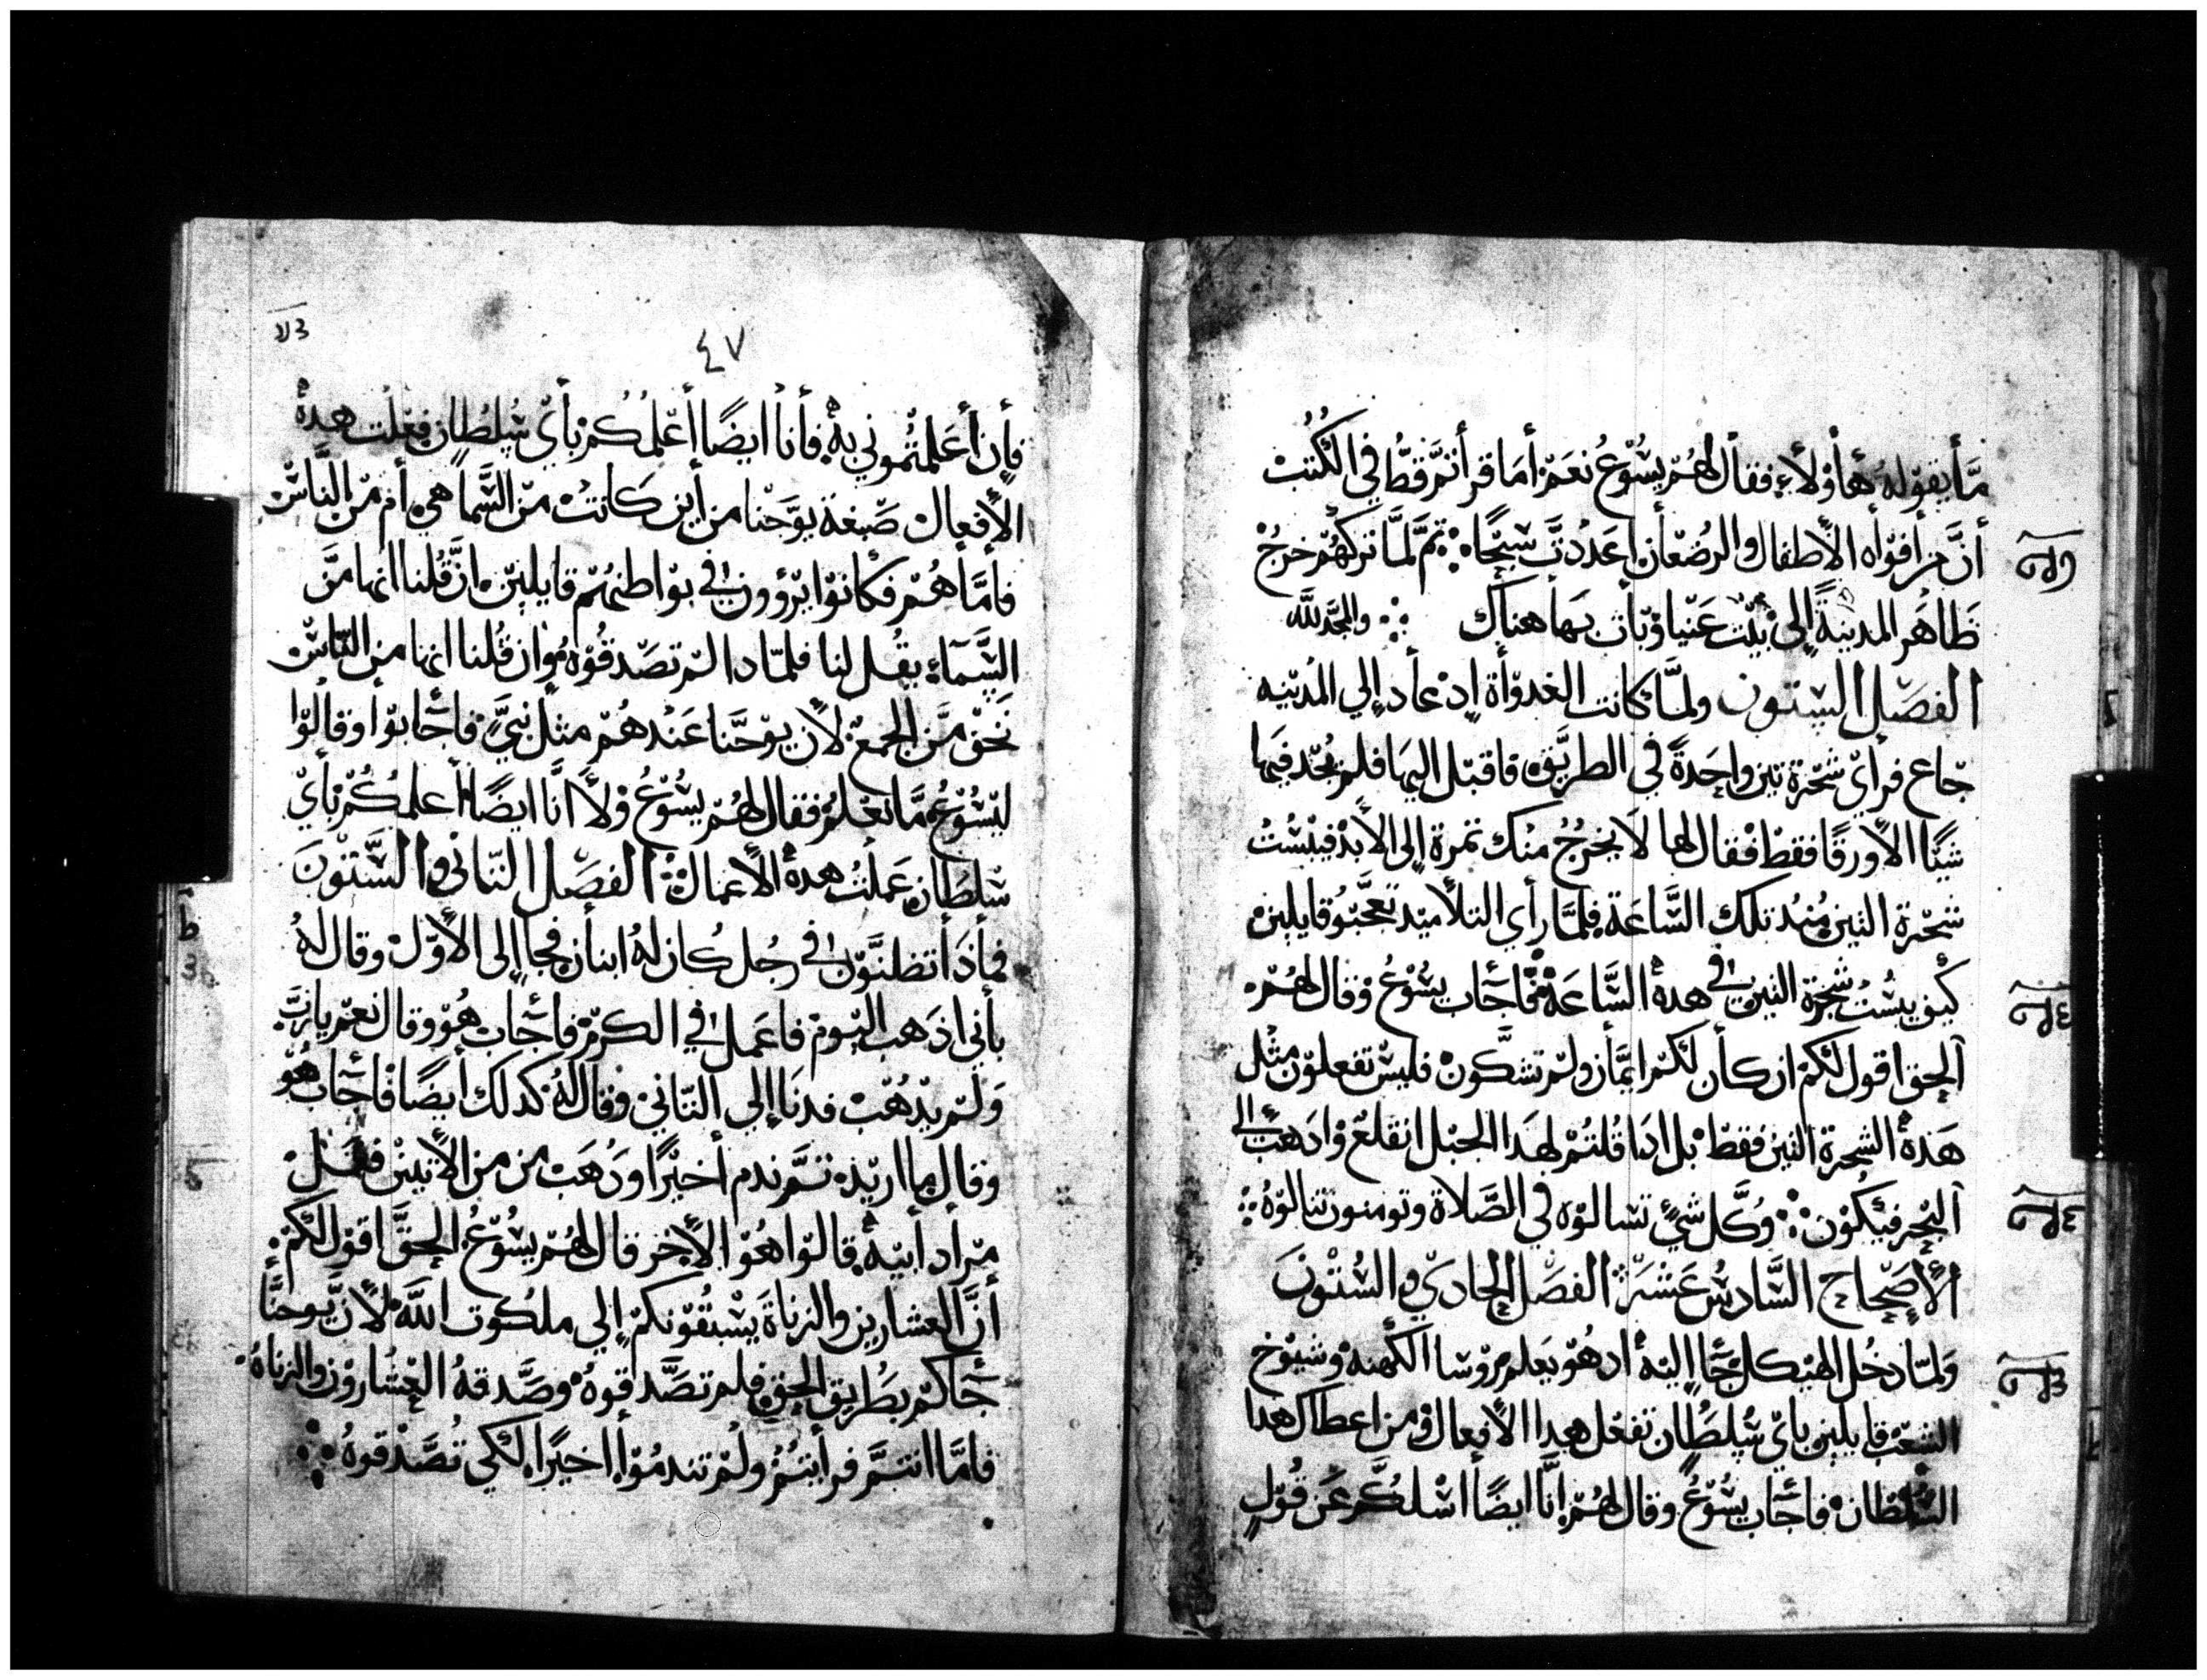 مَّا يقوّله هأوْلاءِ فقال لهُم يسُوْعُ نعَمْ أمَا قرأتمَّ قطُّ في الكُتُبْ
أنَّ من أفوَاه الأطفال والرُضعَان أعَددتَّ سَبحًا ؞ ثمَّ لمَّا تركهُم خرجْ
ظَاهَر المدينةً إلى بيْت عَنيا وّبات بهَا هناك ؞ والمجَد لله
الفصّل الستون ولمَّا كانت الغدوّاة إد عاد إلي المُديّنه
جَاع فرأيّ شجّرة تين واحِدةً في الطريَّق فاقبّل اليهَا فلم يُجّد فيهَا
شيًّا الأورقًا فقطْ فقال لها لا يخرجُ منك تمرة إلى الأبدْ فيبْسُتْ
شجّرة التين مُنْد تلك السَّاعَة فلمَّا رأي التلأميّد تعجَّبوُ قايلينْ
كيْف يبسْتُ شجّرة التين في هدهْ السَّاعَة فأجَاب يسُوْعُ وّقال لهُم
الحق اقول لكمْ ان كأن لكمّ ايمَّان ولمْ تشكَّونْ فليسْ تفعلوّن مثل
هَذهْ الشجرة التين فقطْ بل ادا قُلتمْ لهدا الجبّل انقلعْ وّادهَبْ إلى
البّحر فيكوْن ؞ وُكَّل شيٍّ تسالوّه في الصَّلاة وتومنون تنالوّهُ ؞
الأصْحِاح السَّادسُ عَشْرَ ؞ الفصّل الحِادي والستُوْنَ
وَلمّا دخُل الهيّكل جَا اليّهْ ادهُوّ يعَلم رُوّسا الكَهنهْ وشيُوْخ
الشعّب قايلين بايّ سُلطُان تفعْل هدا الأفعال ومن اعطاك هدا
السُلطان فأجَاب يسُوْعُ وقال لهُمْ إنّا ايضًا اسْلكُم عَن قُوّلٍ
ولا
ولا
٤٧
فأن أعَلمتُموني بهْ فأنأ ايضًا أعَّلمُكُم بأيّ سُلطُان فعّلت هدهْ
الأفعال صّبغة يوَّحنا من أين كَانتْ منّ السَّمأ هي أم منّ النَّاسْ
فأمَّا هُم فكانوّا يرّؤون في بوّاطنهُم قايلينْ انَّ قُلنا انها منَّ
السَّمَآءِ يقُل لنا فلمّا دا لم تصّدقوُه وُان قُلنا انها من النّاسْ
نَخَف منَ الجمع لأن يوّحَّنا عَندهُم مثل نبيّ فأجّابوّا وقالوّا
ليسُوْعُ مَّا نعَلم فقال لهُم يسُوْعُ وْلاَّ انَّا ايضًا أعلمُكُم بأيّ
سَلطَان عَملتُ هدهْ الأعمال ؞ الفصّل التّاني والسّتوْنَ
فمأذَا تظنّوّن في رجُل كُان لهُ ابنأن فجا إلى الأوّلْ وقال لهُ
يأبُني اذَهب اليّومْ فاعَمل في الكرمْ فأجّاب هُوّ وقال نعّم ياربّ
وَلم يدّهُبْ فدنَا إلي التاني وقال لهُ كدلك أيضًا فأجّاب هُوّ
وقال ما اريّدهْ تمَّ ندم أخيّرًا ودُهَبْ من من الأتنينْ فعَلْ
مَراد أبيّهْ قالوّا هُوّ الأخر قال لهُم يسُوّعُ الحقَّ اقوّل لكمْ
أنَّ العشارين والزناةَ يسْبقُوّنكمْ إلي ملكُوت اللهْ لأنَّ يوحَّنا
جَأكمّ بطُريق الحقِ فلم تصَّدقوهُ وصَّدقهُ العشاروّن والزناهُ
فأمَّا انتمَّ فرأيتمْ ولمْ تندمُوّا اخيّرًا لكي تُصَّدقوهُ ؞